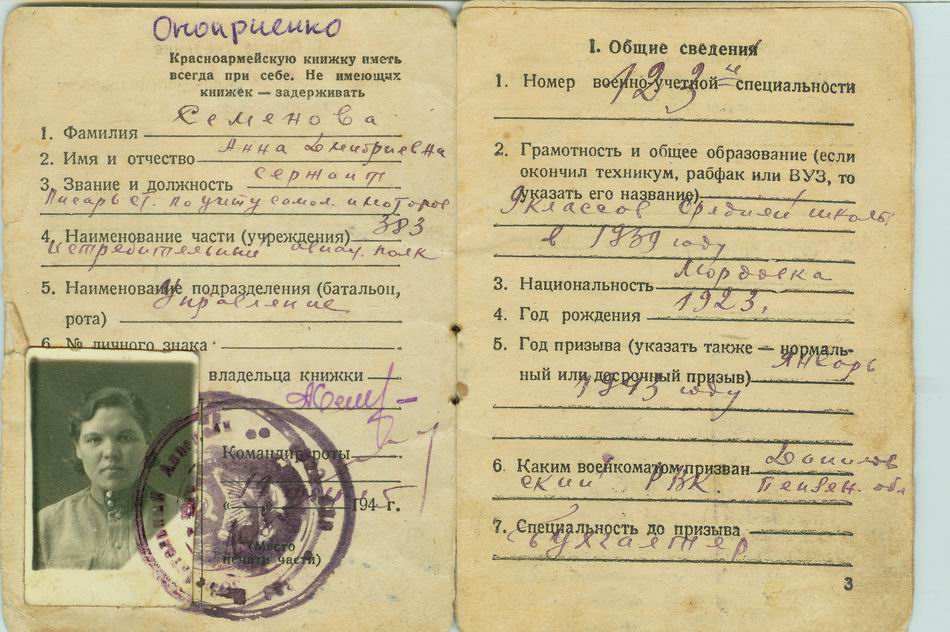 Оноприенко
Красноармейскую книжку иметь
всегда при себе. Не имеющих
книжек — задерживать
1. Фамилия Семенова
2. Имя и отчество Анна Дмитриевна
3. Звание и должность сержант
писарь ст. по учету самол. и моторов
4. Наименование части (учреждения) 383
истребительный авиац. полк
5. Наименование подразделения (батальон,
Управление
рота)
6. № личного знака
владельца книжки
Командир роты
194 г.
(Место
печати части)
I. Общие сведения
1. Номер военно-учетной специальности
123
2. Грамотность и общее образование (если
окончил техникум, рабфак или ВУЗ, то
указать его название)
9 классов средней школы
в 1939 году
3. Национальность Мордовка
4. Год рождения 1923.
5. Год призыва (указать также — нормаль-
ный или досрочный призыв) Январь
1943 году
6. Каким военкоматом призван Данилов
ский РВК. Пензен. обл
7. Специальность до призыва
Бухгалтер
3